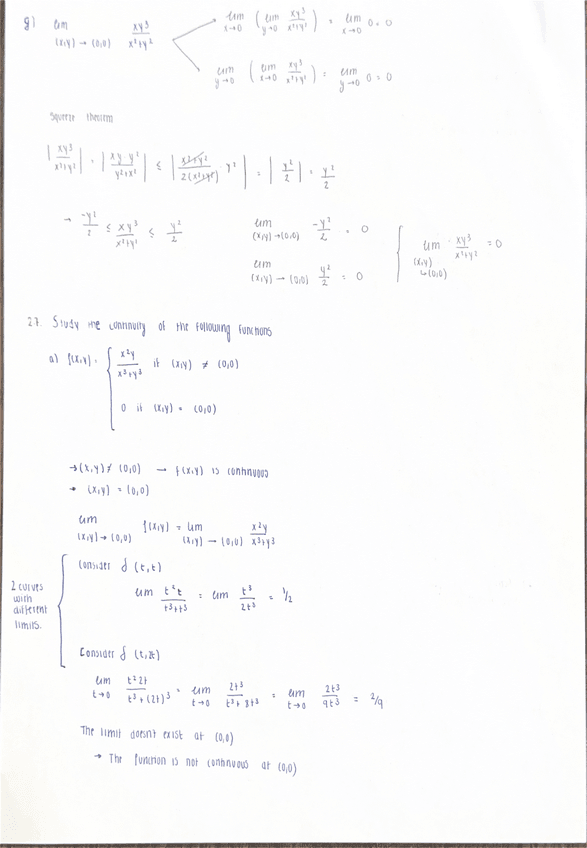 g) lim (x,y) → (0,0) xy³/x²+y²
lim x→0 ( lim y→0 xy³/x²+y² ) = lim x→0 0 = 0
lim y→0 ( lim x→0 xy³/x²+y² ) = lim y→0 0 = 0
Squeeze theorem
| xy³/x²+y² | = | xy y²/y²+x² | ≤ | x²+y²/2(x²+y²) · y² | = | y²/2 | = y²/2
→ -y²/2 ≤ xy³/x²+y² ≤ y²/2
lim (x,y)→(0,0) -y²/2 = 0
lim (x,y)→(0,0) y²/2 = 0
lim (x,y)→(0,0) xy³/x²+y² = 0
27. Study the continuity of the following functions
a) f(x,y) = { x²y/x³+y³ if (x,y) ≠ (0,0)
0 if (x,y) = (0,0)
→ (x,y) ≠ (0,0) → f(x,y) is continuous
→ (x,y) = (0,0)
lim (x,y)→(0,0) f(x,y) = lim (x,y)→(0,0) x²y/x³+y³
2 curves
with
different
limits.
Consider f (t,t)
lim t²t/t³+t³ = lim t³/2t³ = 1/2
Consider f (t,2t)
lim t→0 t²2t/t³+(2t)³ = lim t→0 2t³/t³+8t³ = lim t→0 2t³/9t³ = 2/9
The limit doesn't exist at (0,0)
→ The function is not continuous at (0,0)